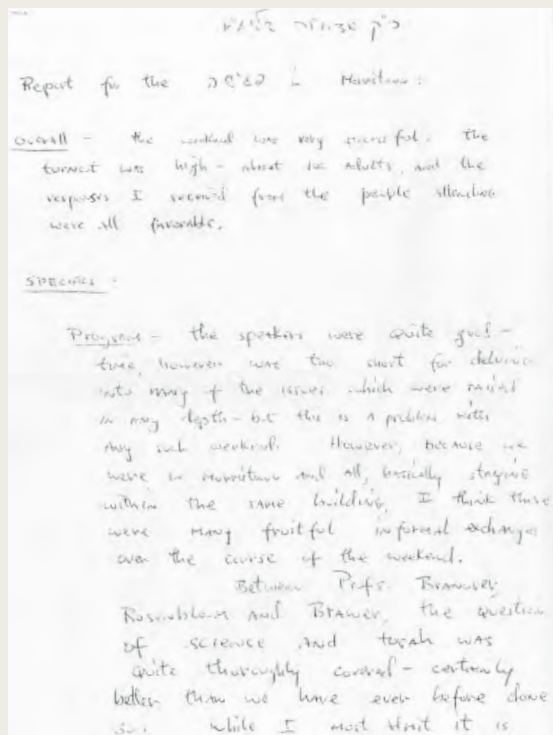 Report for the in Morristown :
Overall - the weekend was very successful. the
turnout was high - about adults, and the
responses I received from the people attending
were all favorable.
SPECIFICS :
Program - the speakers were quite good -
time, however was too short for delving
into many of the issues which were raised
in any depth - but this is a problem with
any such weekend. However, because we
were in Morristown and all, basically staying
within the same building, I think there
were many fruitful informal exchanges
over the course of the weekend.
Between Profs.
and Brawer, the question
of science and torah was
quite thoroughly covered - certainly
better than we have ever before done
so. While I must admit it is